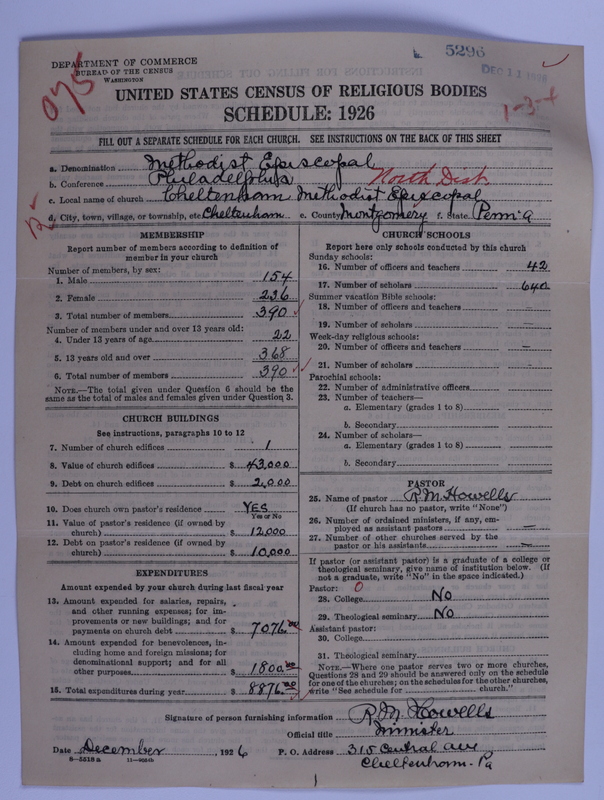 5296
DEPARTMENT OF COMMERCE
BUREAU OF THE CENSUS
WASHINGTON
DEC 11 1926
075
UNITED STATES CENSUS OF RELIGIOUS BODIES
SCHEDULE: 1926
1-3-4
FILL OUT A SEPARATE SCHEDULE FOR EACH CHURCH. SEE INSTRUCTIONS ON THE BACK OF THIS SHEET
a. Denomination Methodist Episcopal
b. Conference Philadelphia North Dist.
c. Local name of church Cheltenham Methodist Episcopal
d. City, town, village, or township, etc. Cheltenham e. County Montgomery f. State Penn'a
MEMBERSHIP
Report number of members according to definition of member in your church
Number of members, by sex:
1. Male 154
2. Female 236
3. Total number of members 390
Number of members under and over 13 years old:
4. Under 13 years of age 22
5. 13 years old and over 368
6. Total number of members 390
NOTE.—The total given under Question 6 should be
the same as the total of males and females given under Question 3.
CHURCH BUILDINGS
See instructions, paragraphs 10 to 12
7. Number of church edifices 1
8. Value of church edifices $ 43,000
9. Debt on church edifices $ 2,000
10. Does church own pastor's residence YES
Yes or No
11. Value of pastor's residence (if owned by
church) $ 12,000
12. Debt on pastor's residence (if owned by
church) $ 10,000
EXPENDITURES
Amount expended by your church during last fiscal year
13. Amount expended for salaries, repairs,
and other running expenses; for im-
provements or new buildings; and for
payments on church debt $ 7076.00
14. Amount expended for benevolences, in-
cluding home and foreign missions; for
denominational support; and for all
other purposes $ 1800.00
15. Total expenditures during year $ 8876.00
CHURCH SCHOOLS
Report here only schools conducted by this church
Sunday schools:
16. Number of officers and teachers 42
17. Number of scholars 640
Summer vacation Bible schools:
18. Number of officers and teachers —
19. Number of scholars —
Week-day religious schools:
20. Number of officers and teachers —
21. Number of scholars -
Parochial schools:
22. Number of administrative officers
23. Number of teachers—
a. Elementary (grades 1 to 8)
b. Secondary
24. Number of scholars—
a. Elementary (grades 1 to 8)
b. Secondary
PASTOR
25. Name of pastor R. M. Howells
(If church has no pastor, write "None")
26. Number of ordained ministers, if any, em-
ployed as assistant pastors —
27. Number of other churches served by the
pastor or his assistants —
If pastor (or assistant pastor) is a graduate of a college or
theological seminary, give name of institution below. (If
not a graduate, write "No" in the space indicated.)
Pastor: 0
28. College No
29. Theological seminary No
Assistant pastor:
30. College
31. Theological seminary
NOTE.—Where one pastor serves two or more churches,
Questions 28 and 29 should be answered only on the schedule
for one of the churches; on the schedules for the other churches,
write "See schedule for church."
Signature of person furnishing information R. M. Howells
Official title Minister
Date December, 1926 P. O. Address 315 Central ave
8—5518a Cheltenham - Pa